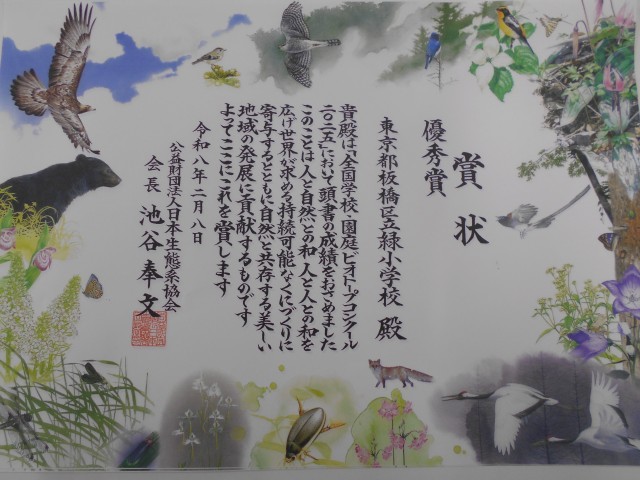 賞状
優秀賞
東京都板橋区立緑小学校 殿
貴殿は「全国学校・園庭ビオトープコンクール
二〇二五」において頭書の成績をおさめました
このことは人と自然との和 人と人との和を
広げ世界が求める持続可能なくにづくりに
寄与するとともに自然と共存する美しい
地域の発展に貢献するものです
よってここにこれを賞します
令和八年二月八日
公益財団法人日本生態系協会
会長 池谷奉文